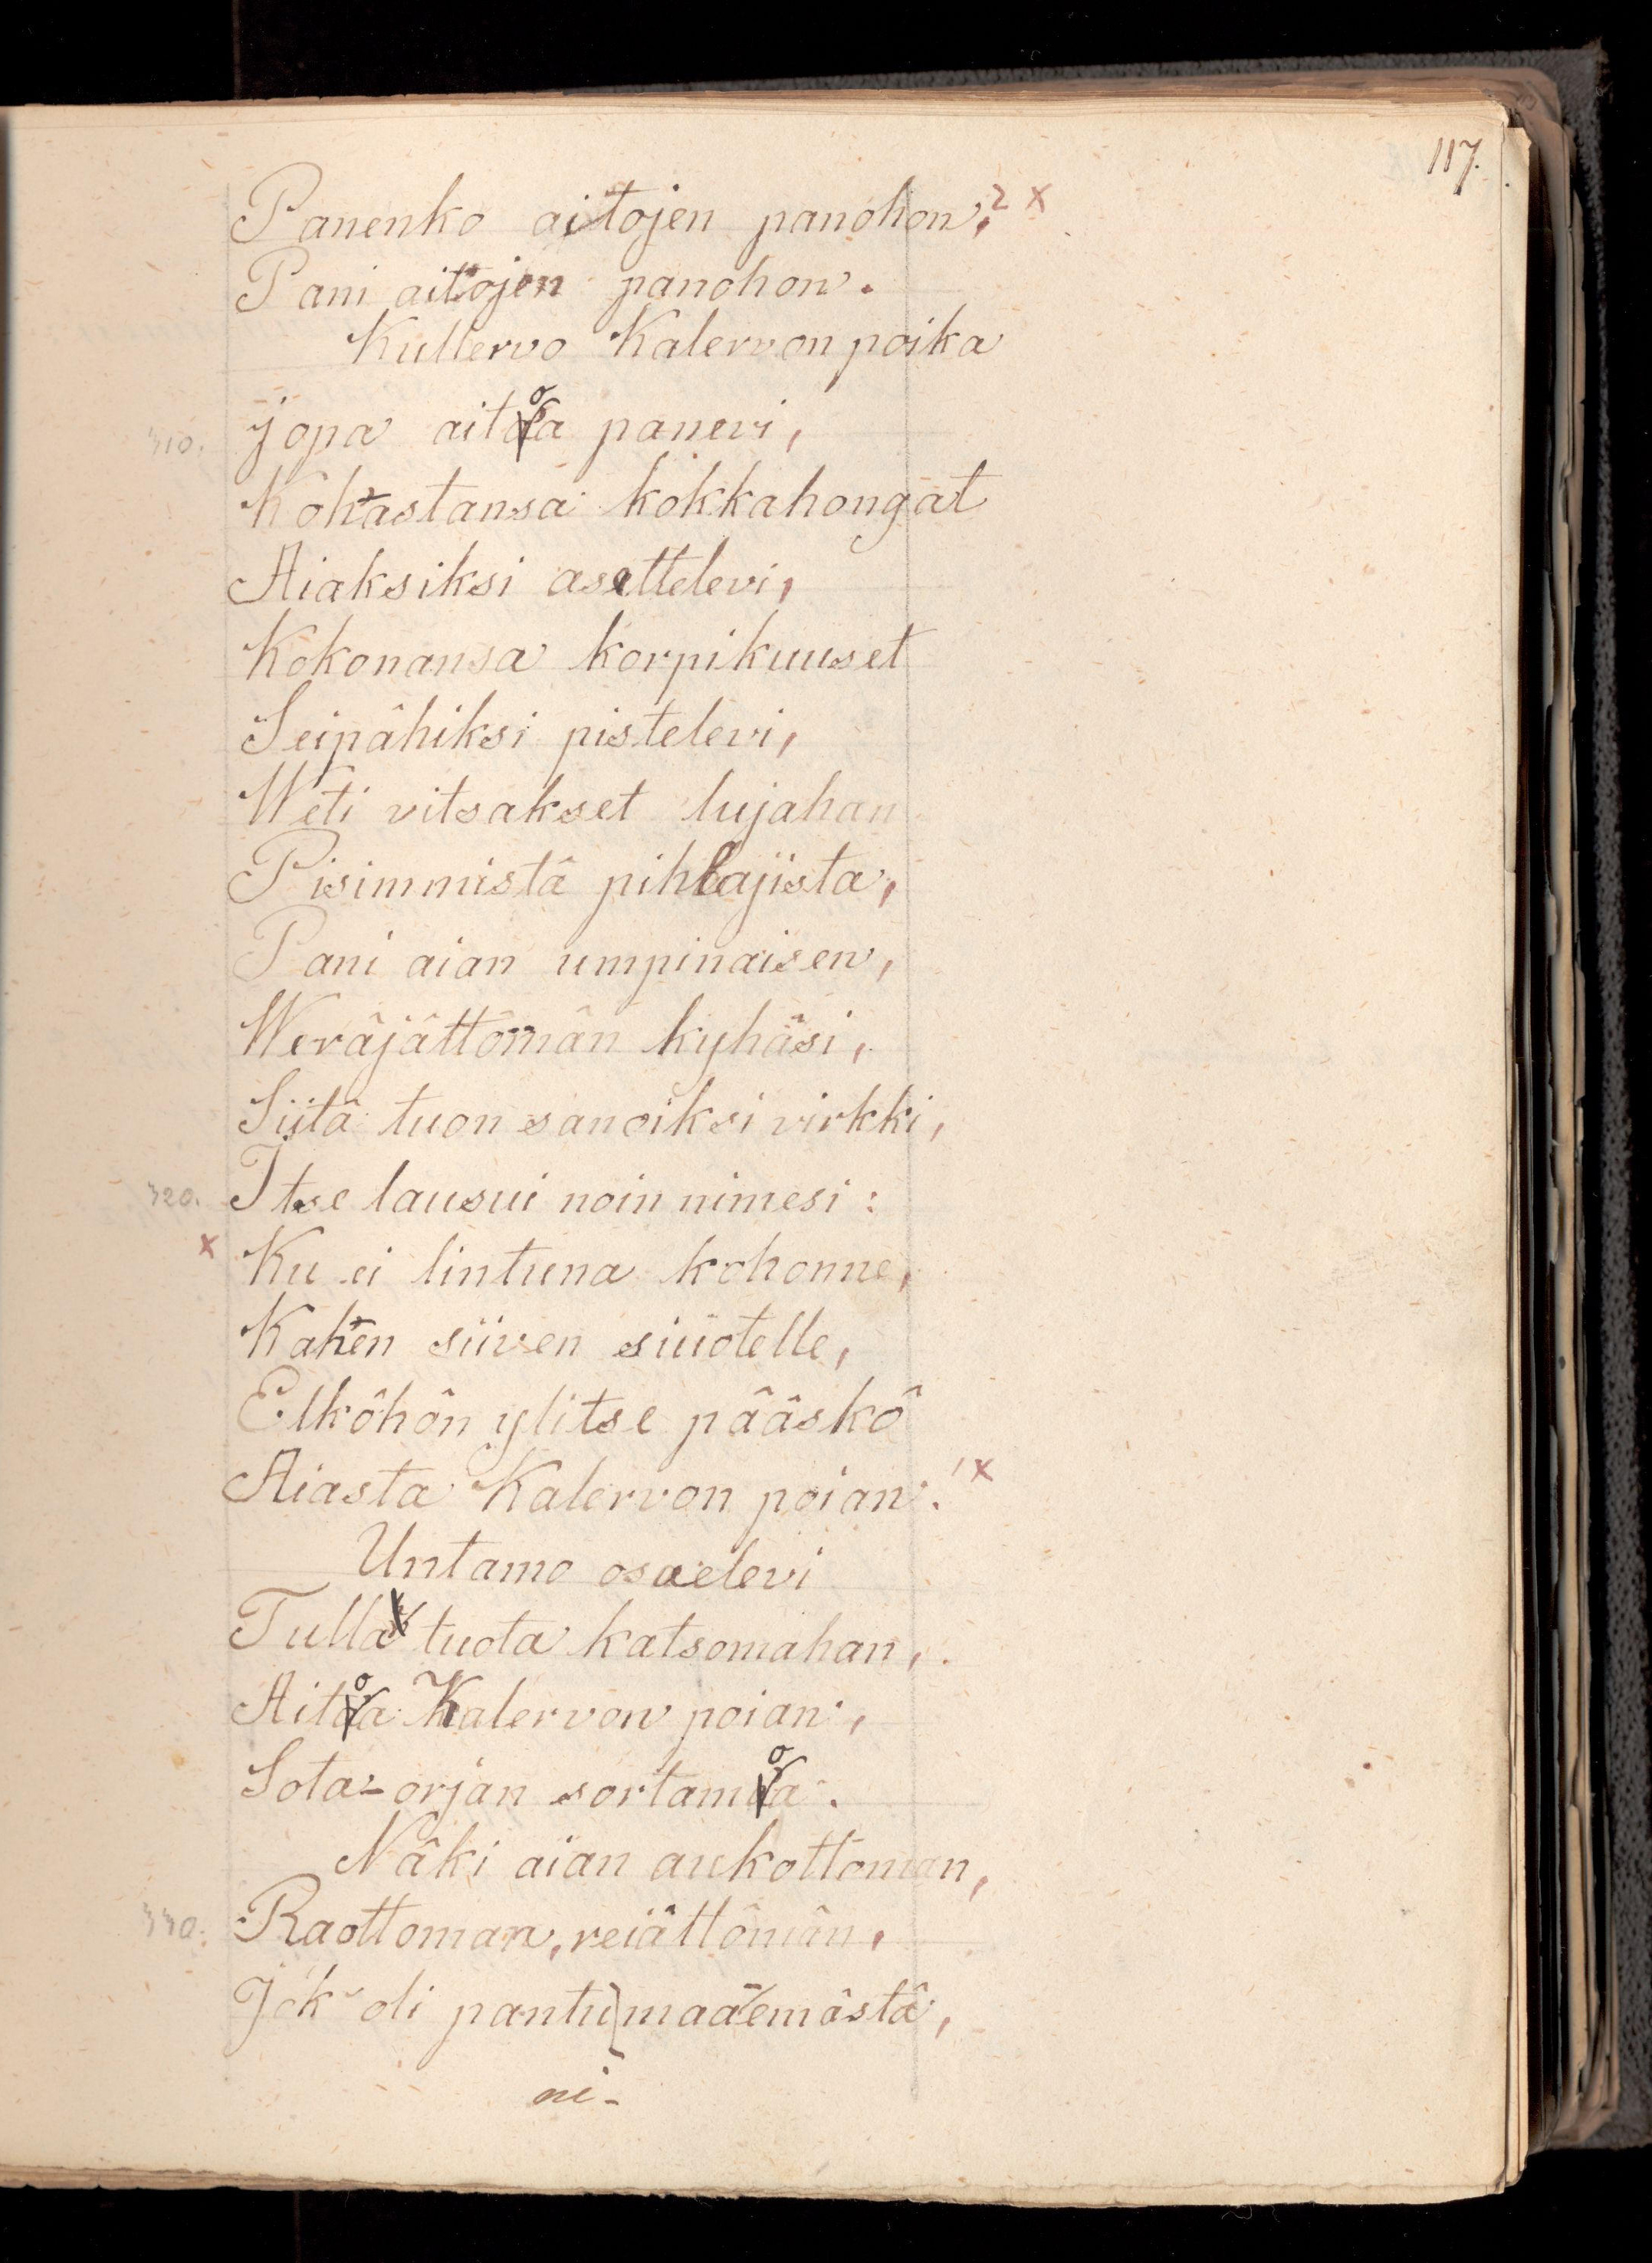 117.
Panenko aitojen panohon? x
Pani aitojen panohon.
Kullervo Kalervon poika
310. Jopa aitoa panevi,
Kohastansa kokkahongat
Aiaksiksi asettelevi,
Kokonansa korpikuuset
Seipâhiksi pistelevi,
Weti vitsakset lujahan
Pisimmistâ pihlajista,
Pani aian umpinaisen,
Werâjâttômân kyhâsi,
Siitâ tuon sanoiksi virkki,
320. Itse lausui noin nimesi:
x Ku ei lintuna kohonne,
Kahen siiven siuotelle,
Elkôhôn ylitse pââskô
Aiasta Kalervon poian! x
Untamo osaelevi
Tulla tuota katsomahan,
Aitoa Kalervon poian,
Sota-orjan sortamoa.
Nâki aian aukottoman,
330. Raottoman, reiâttômân,
Jok' oli pantu maaemâstâ,
ni-